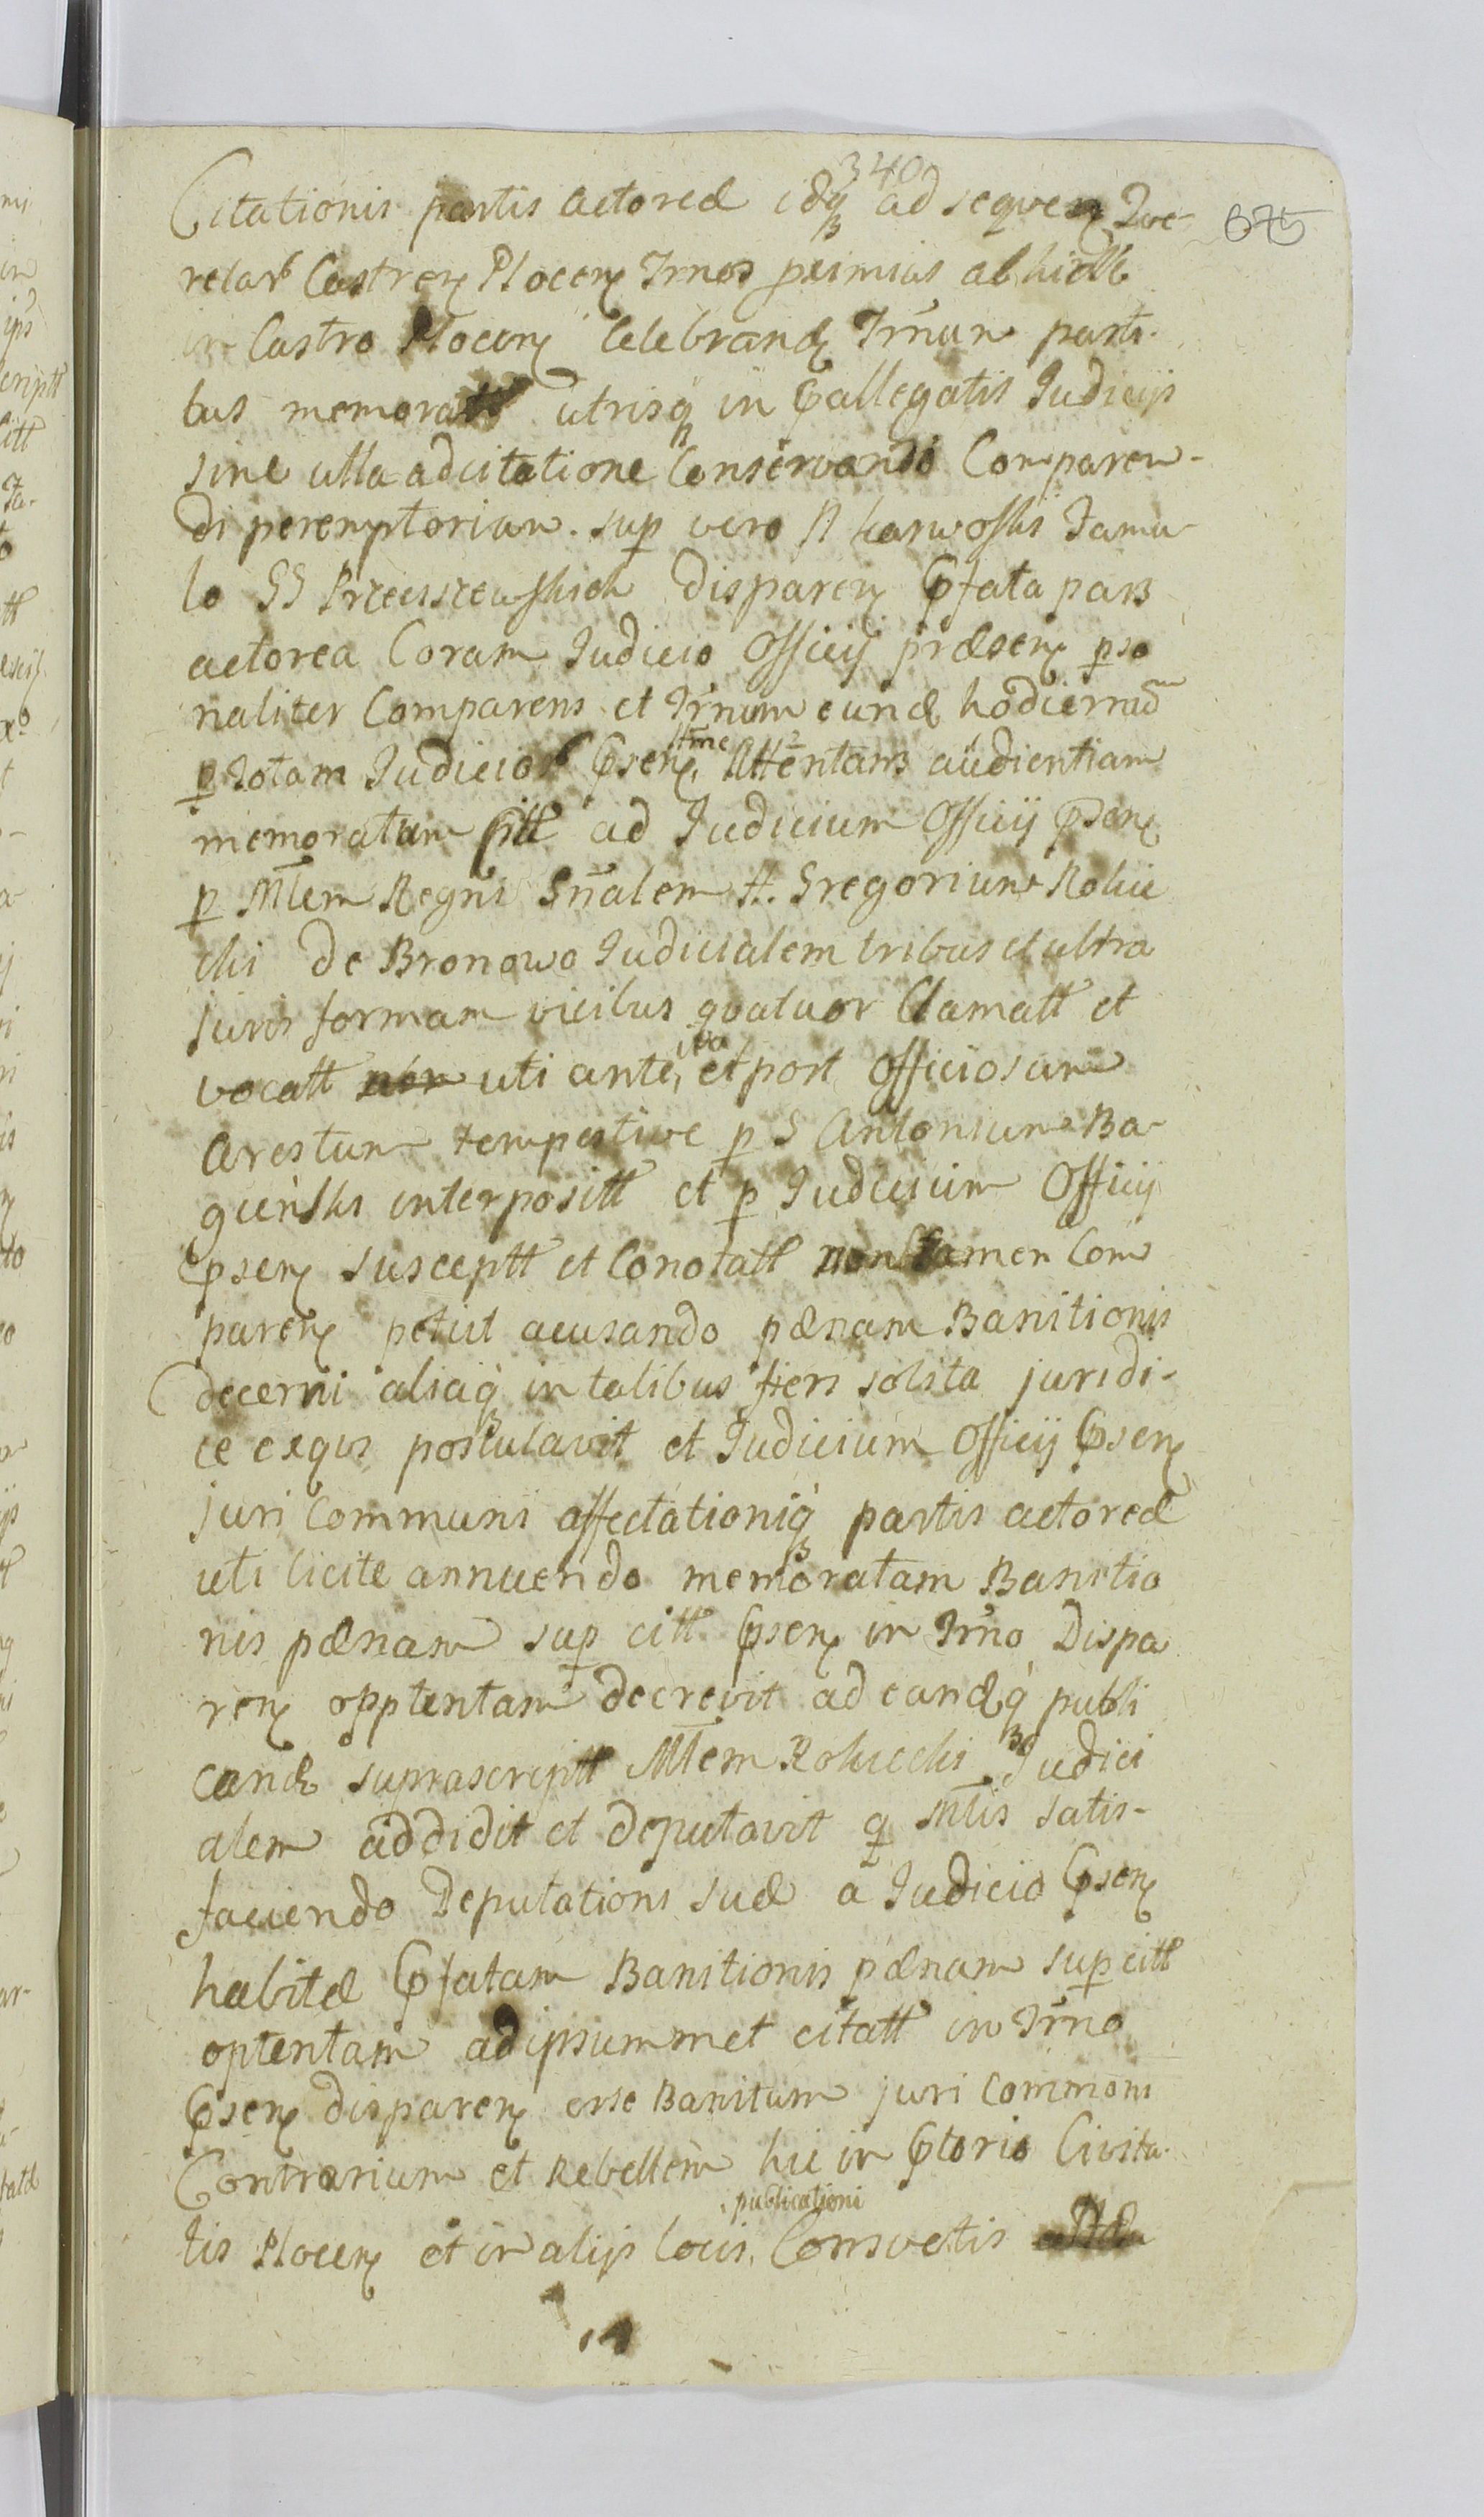 340
675
Citationis partis actoreæ idq₃ ad sequen Qve-
relar Castren Plocen Trnos primius ab hidb
in Castro Plocen Celebrand Trnum parti-
bus memoratt utrisq₃ in pallegatis Judicijs
sine ulla adcitatione Conservando Comparen-
di peremptorium. sup vero N karwoski Famu-
lo SS Przeciszewskich disparen pfata pars
actorea Coram Judicio Officij præsen pso
naliter Comparens et Trnum eund hodiernæ
p Totam Judicior psen, ttme Attentam audientiam
memoratum Citt ad Judicium Officij psen
p Mlem Regni Gnalem A. Gregorium Rokic
cki de Bronowo Judicialem tribus et ultra
juris formam vicibus qvatuor Clamatt et
vocatt uti ante, ita et post Officiosum
Arestum tempestive p S Antonium Ba-
gienski interpositt et p Judicium Officij
psen susceptt et Conotatt non tamen Com
paren petiit acusando pænam Banitionis
decerni aliaq₃ in talibus fieri solita juridi-
ce exqvs postulavit et Judicium Officij psen
juri Communi affectationiq₃ partis actoreæ
uti licite annuendo memoratam Banitio
nis pænam sup citt psen in Trno Dispa
ren opptentam decrevit ad eandq publi
cand suprascriptt Mlem Rokicki Judici
alem addidit et deputavit q Mlis satis-
faciendo Deputationi suæ a Judicio psen
habitæ pfatam Banitionis pænam sup citt
optentam ad ipsummet citatt in Trno
psen disparen esse Banitum juri Communi
Contrarium et Rebellem hic in ptorio Civita-
tis Plocen et in alijs locis, publicationi Consvetis